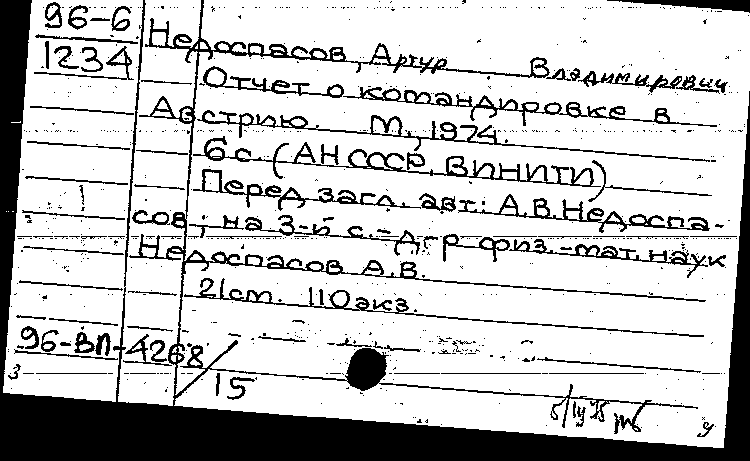 96-6
1234
Недоспасов, Артур Владимирович
Отчет о командировке в
Австрию. М., 1974.
6 с. (АН СССР, ВИНИТИ)
Перед загл. авт.: А.В. Недоспа-
сов; на 3-й с. - д-р физ.-мат. наук
Недоспасов А.В.
21 см. 110 экз.
96-ВП-4268/15
3